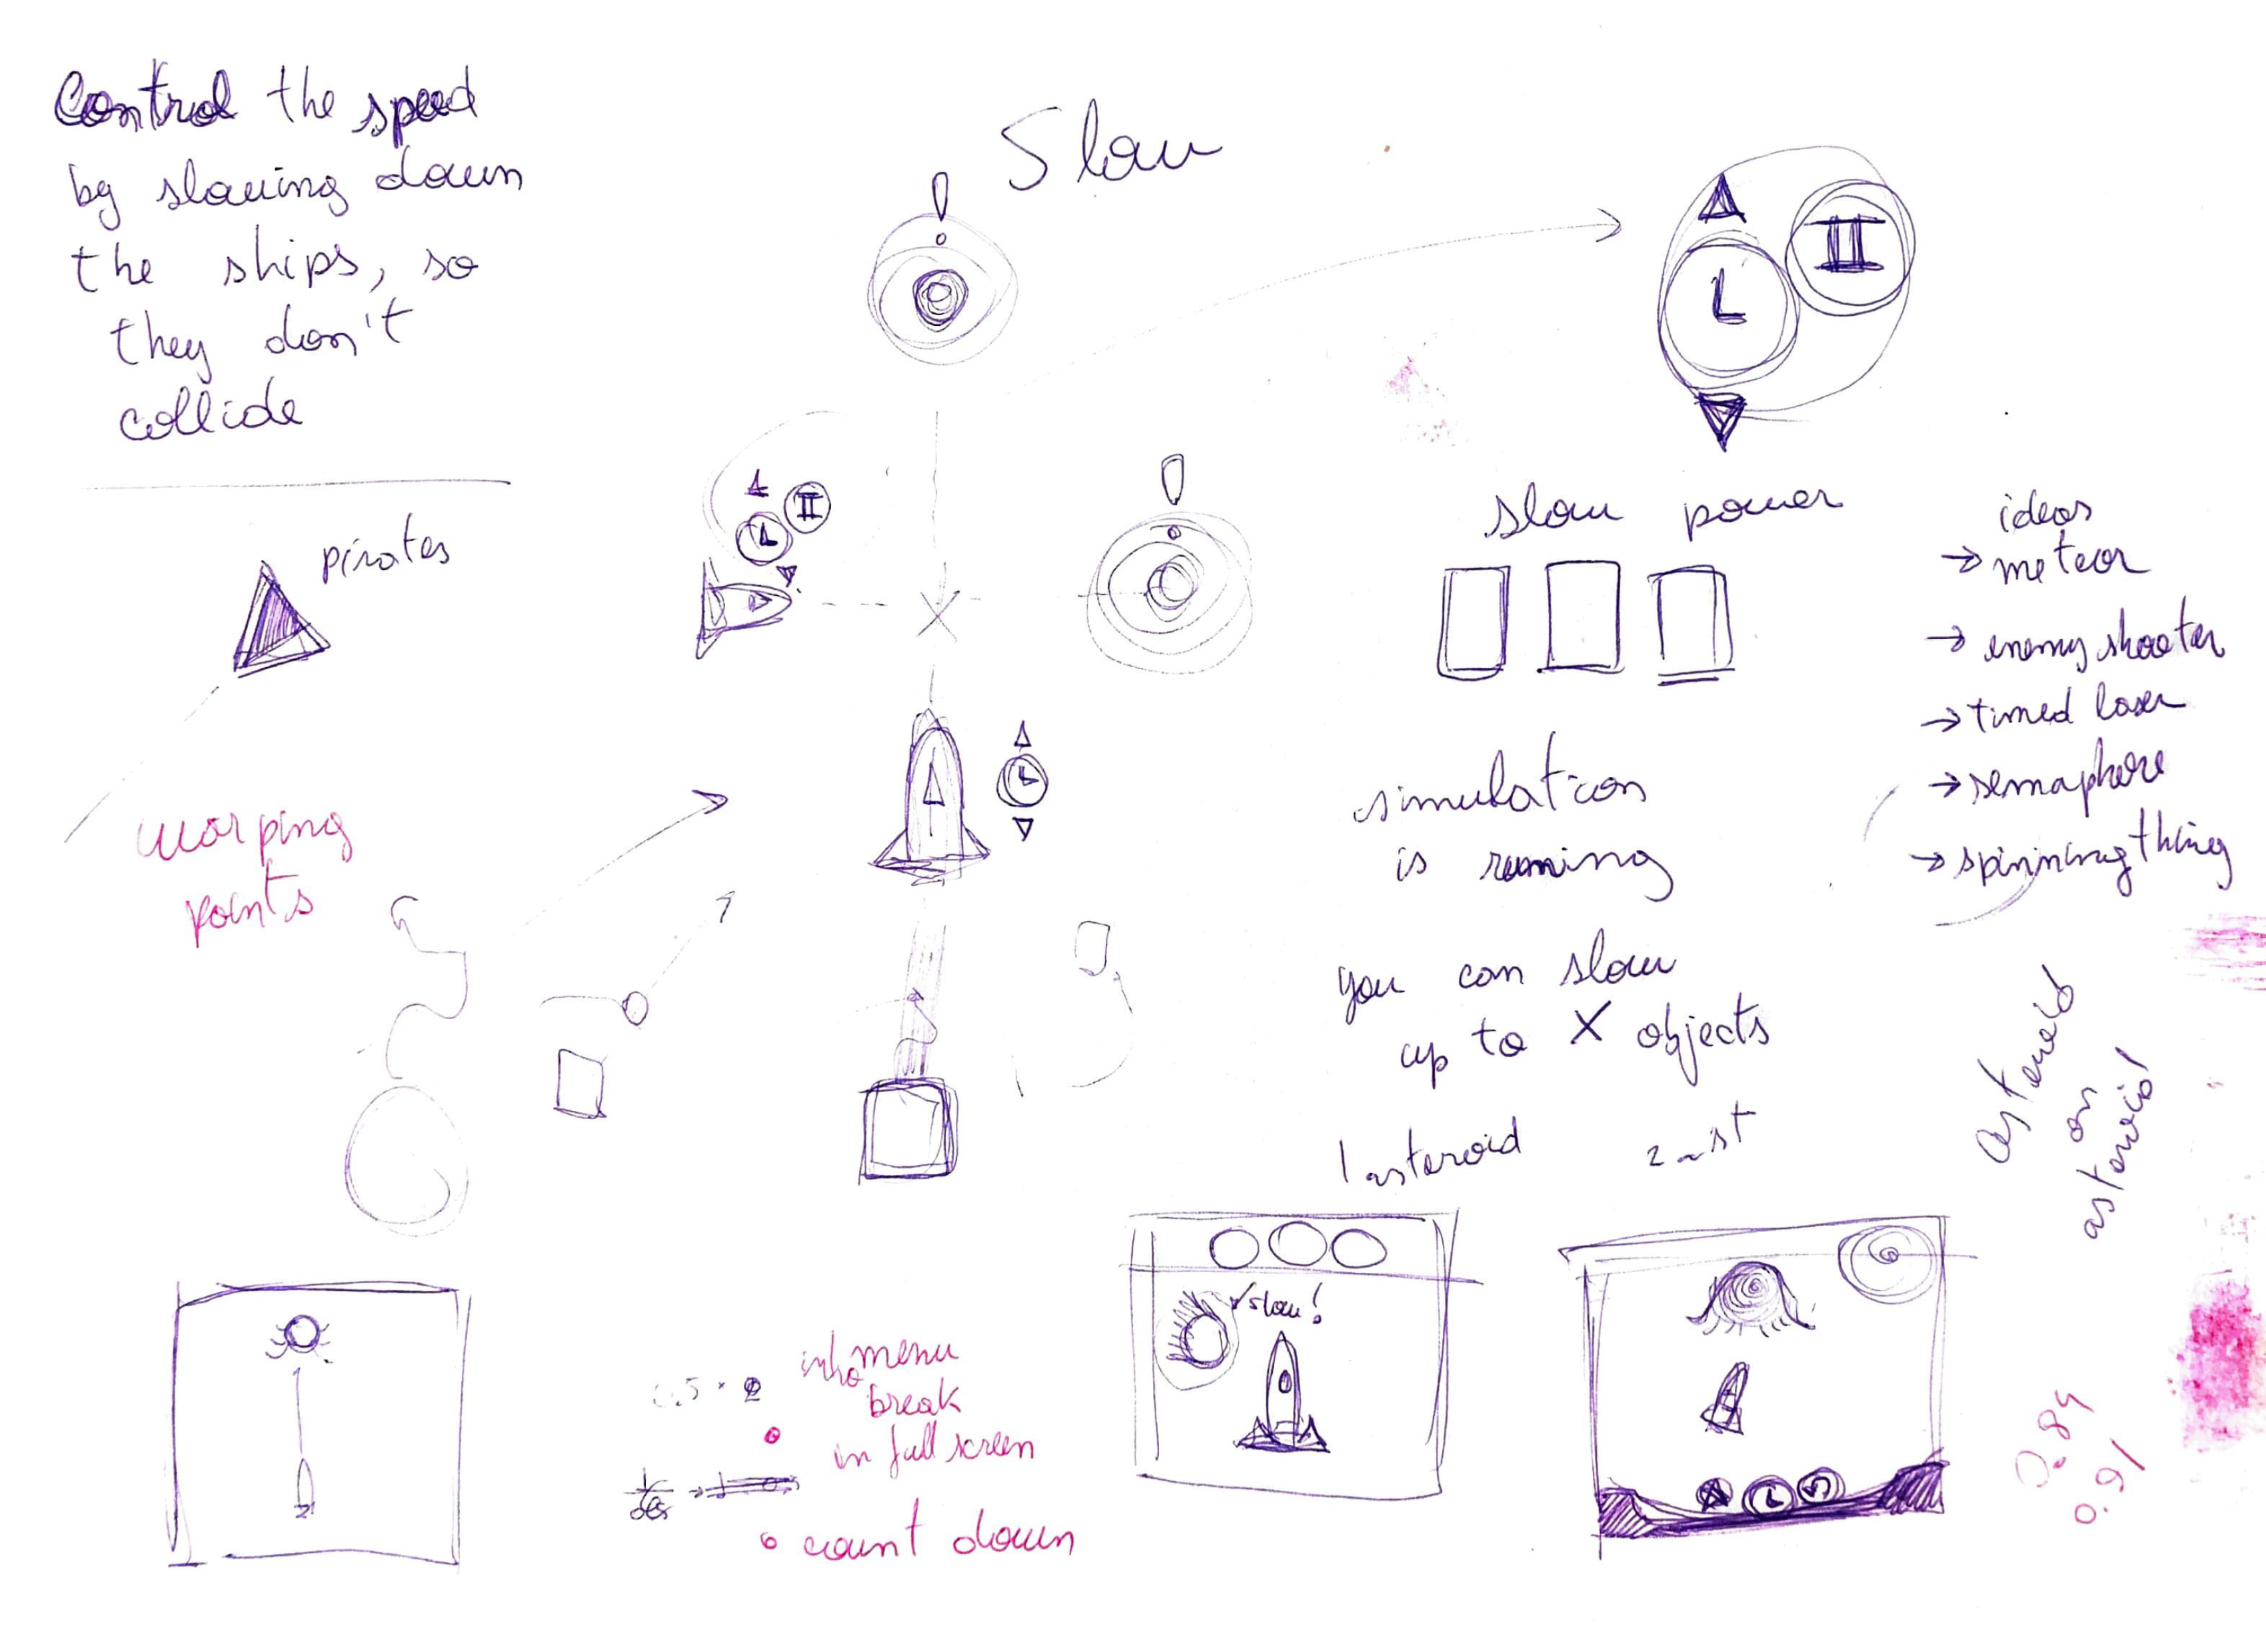 Control the speed
by slowing down
the ships, so
they don't
collide
Slow
pirates
warping
points
slow power
simulation
is running
you can slow
up to X objects
1 asteroid
ideas
→ meteor
→ enemy shooter
→ timed laser
→ semaphore
→ spinning thing
asteroid
on
asteroid
slow!
menu
break
in full screen
count down
0.84
0.91